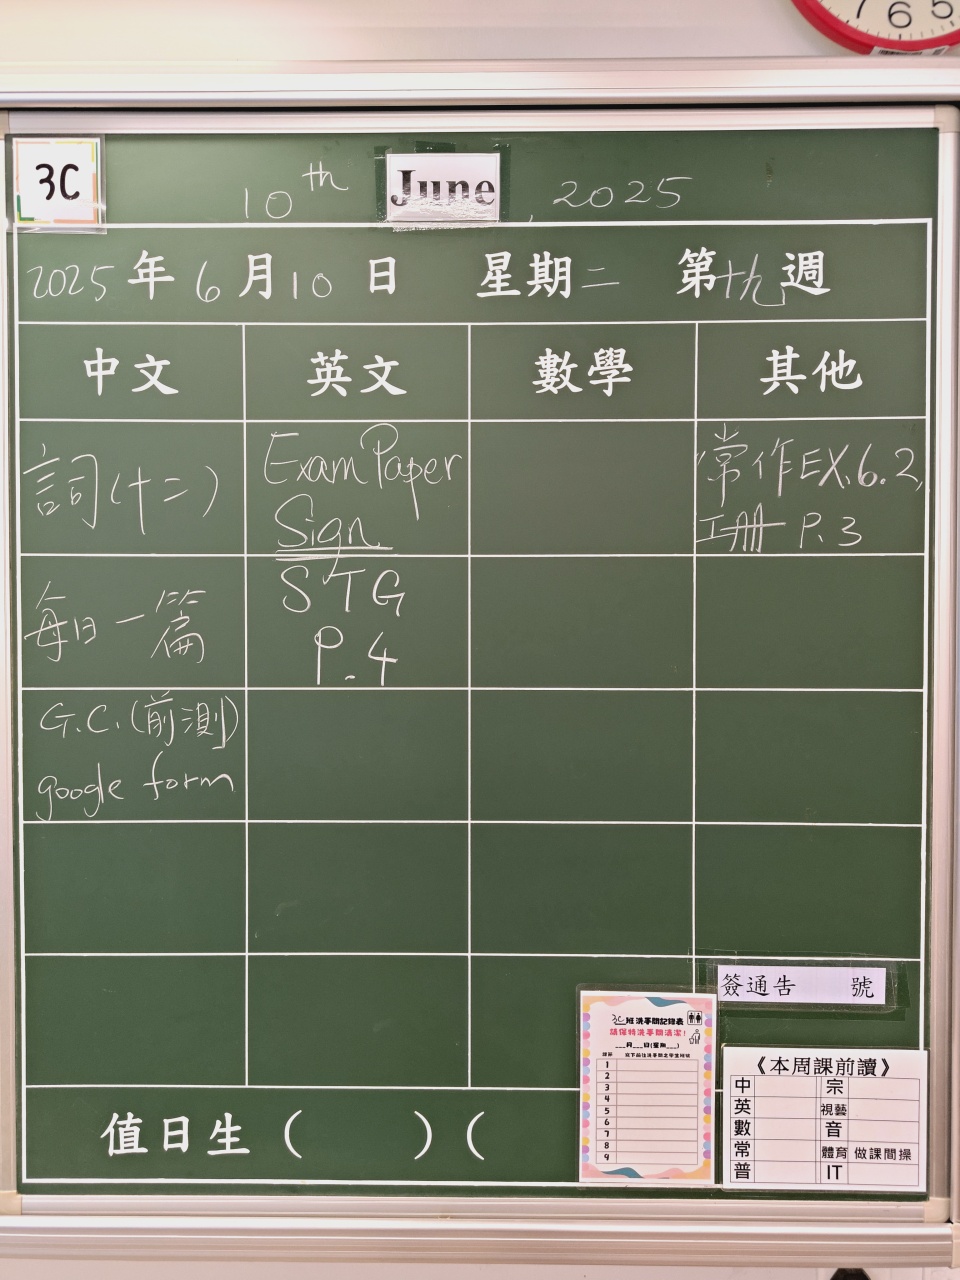 7 6 5
3C
10th June, 2025
2025年6月10日 星期二 第十九週
中文 英文 數學 其他
詞(十二)
每日一篇
G.C.(前測)
google form
Exam Paper
Sign
STG
P.4
常作EX.6.2,
工冊 P.3
簽通告 號
值日生( )(
3C班洗手間記錄表
請保持洗手間清潔!
___月___日(星期___)
1
2
3
4
5
6
7
8
9
《本周課前讀》
中 宗
英 視藝
數 音
常 體育 做課間操
普 IT